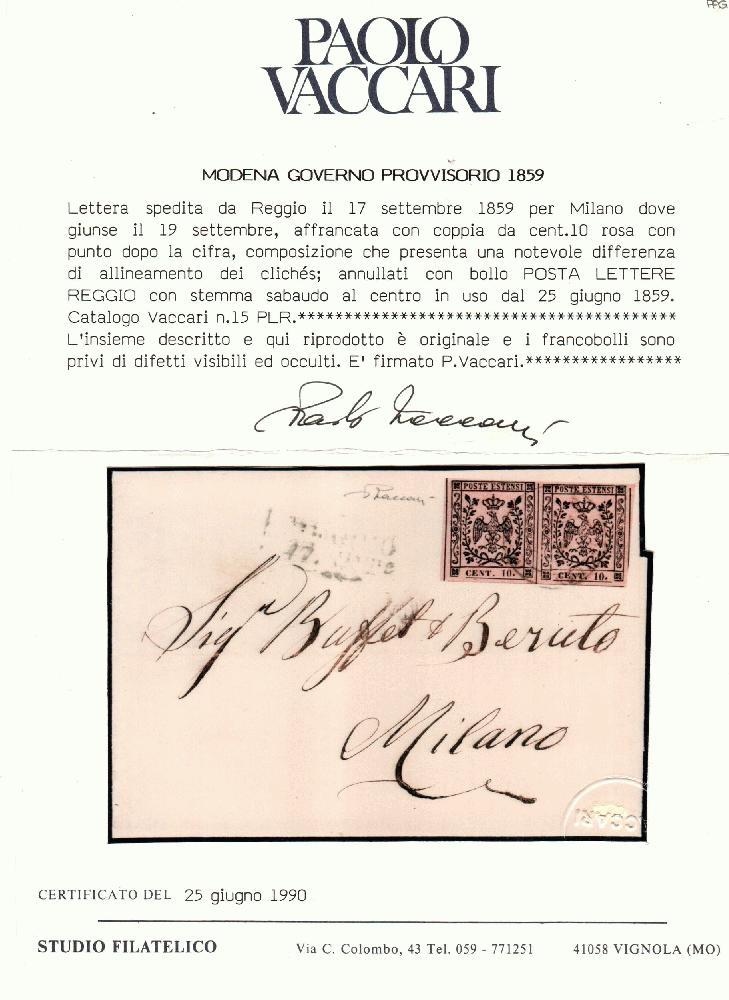 PPG
PAOLO
VACCARI
MODENA GOVERNO PROVVISORIO 1859
Lettera spedita da Reggio il 17 settembre 1859 per Milano dove
giunse il 19 settembre, affrancata con coppia da cent.10 rosa con
punto dopo la cifra, composizione che presenta una notevole differenza
di allineamento dei clichés; annullati con bollo POSTA LETTERE
REGGIO con stemma sabaudo al centro in uso dal 25 giugno 1859.
Catalogo Vaccari n.15 PLR.*****************************************
L'insieme descritto e qui riprodotto è originale e i francobolli sono
privi di difetti visibili ed occulti. E' firmato P.Vaccari.*****************
Paolo Vaccari
POSTE ESTENSI POSTE ESTENSI
CENT. 10. CENT. 10.
Sigri Buffet & Beruto
Milano
CERTIFICATO DEL 25 giugno 1990
STUDIO FILATELICO Via C. Colombo, 43 Tel. 059 - 771251 41058 VIGNOLA (MO)